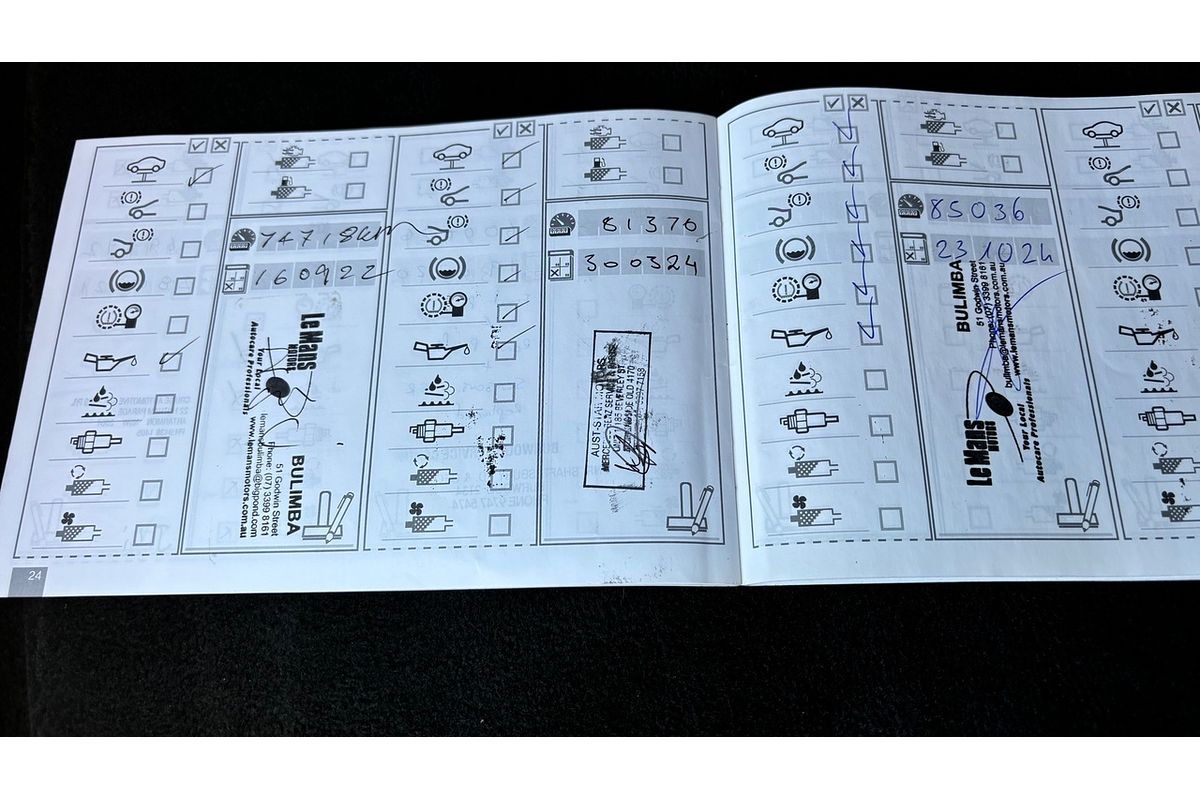 74718km
160922
Le Mans
MOTORS
Your Local
Autocare Professionals
BULIMBA
51 Godwin Street
Phone: (07) 3399 8161
lemansbulimba@bigpond.com
www.lemansmotors.com.au
81370
300324
AUST-STAR MOTORS
85036
231024
BULIMBA
51 Godwin Street
Phone: (07) 3399 8161
bulimba@lemansmotors.com.au
www.lemansmotors.com.au
Le Mans
MOTORS
Your Local
Autocare Professionals
24